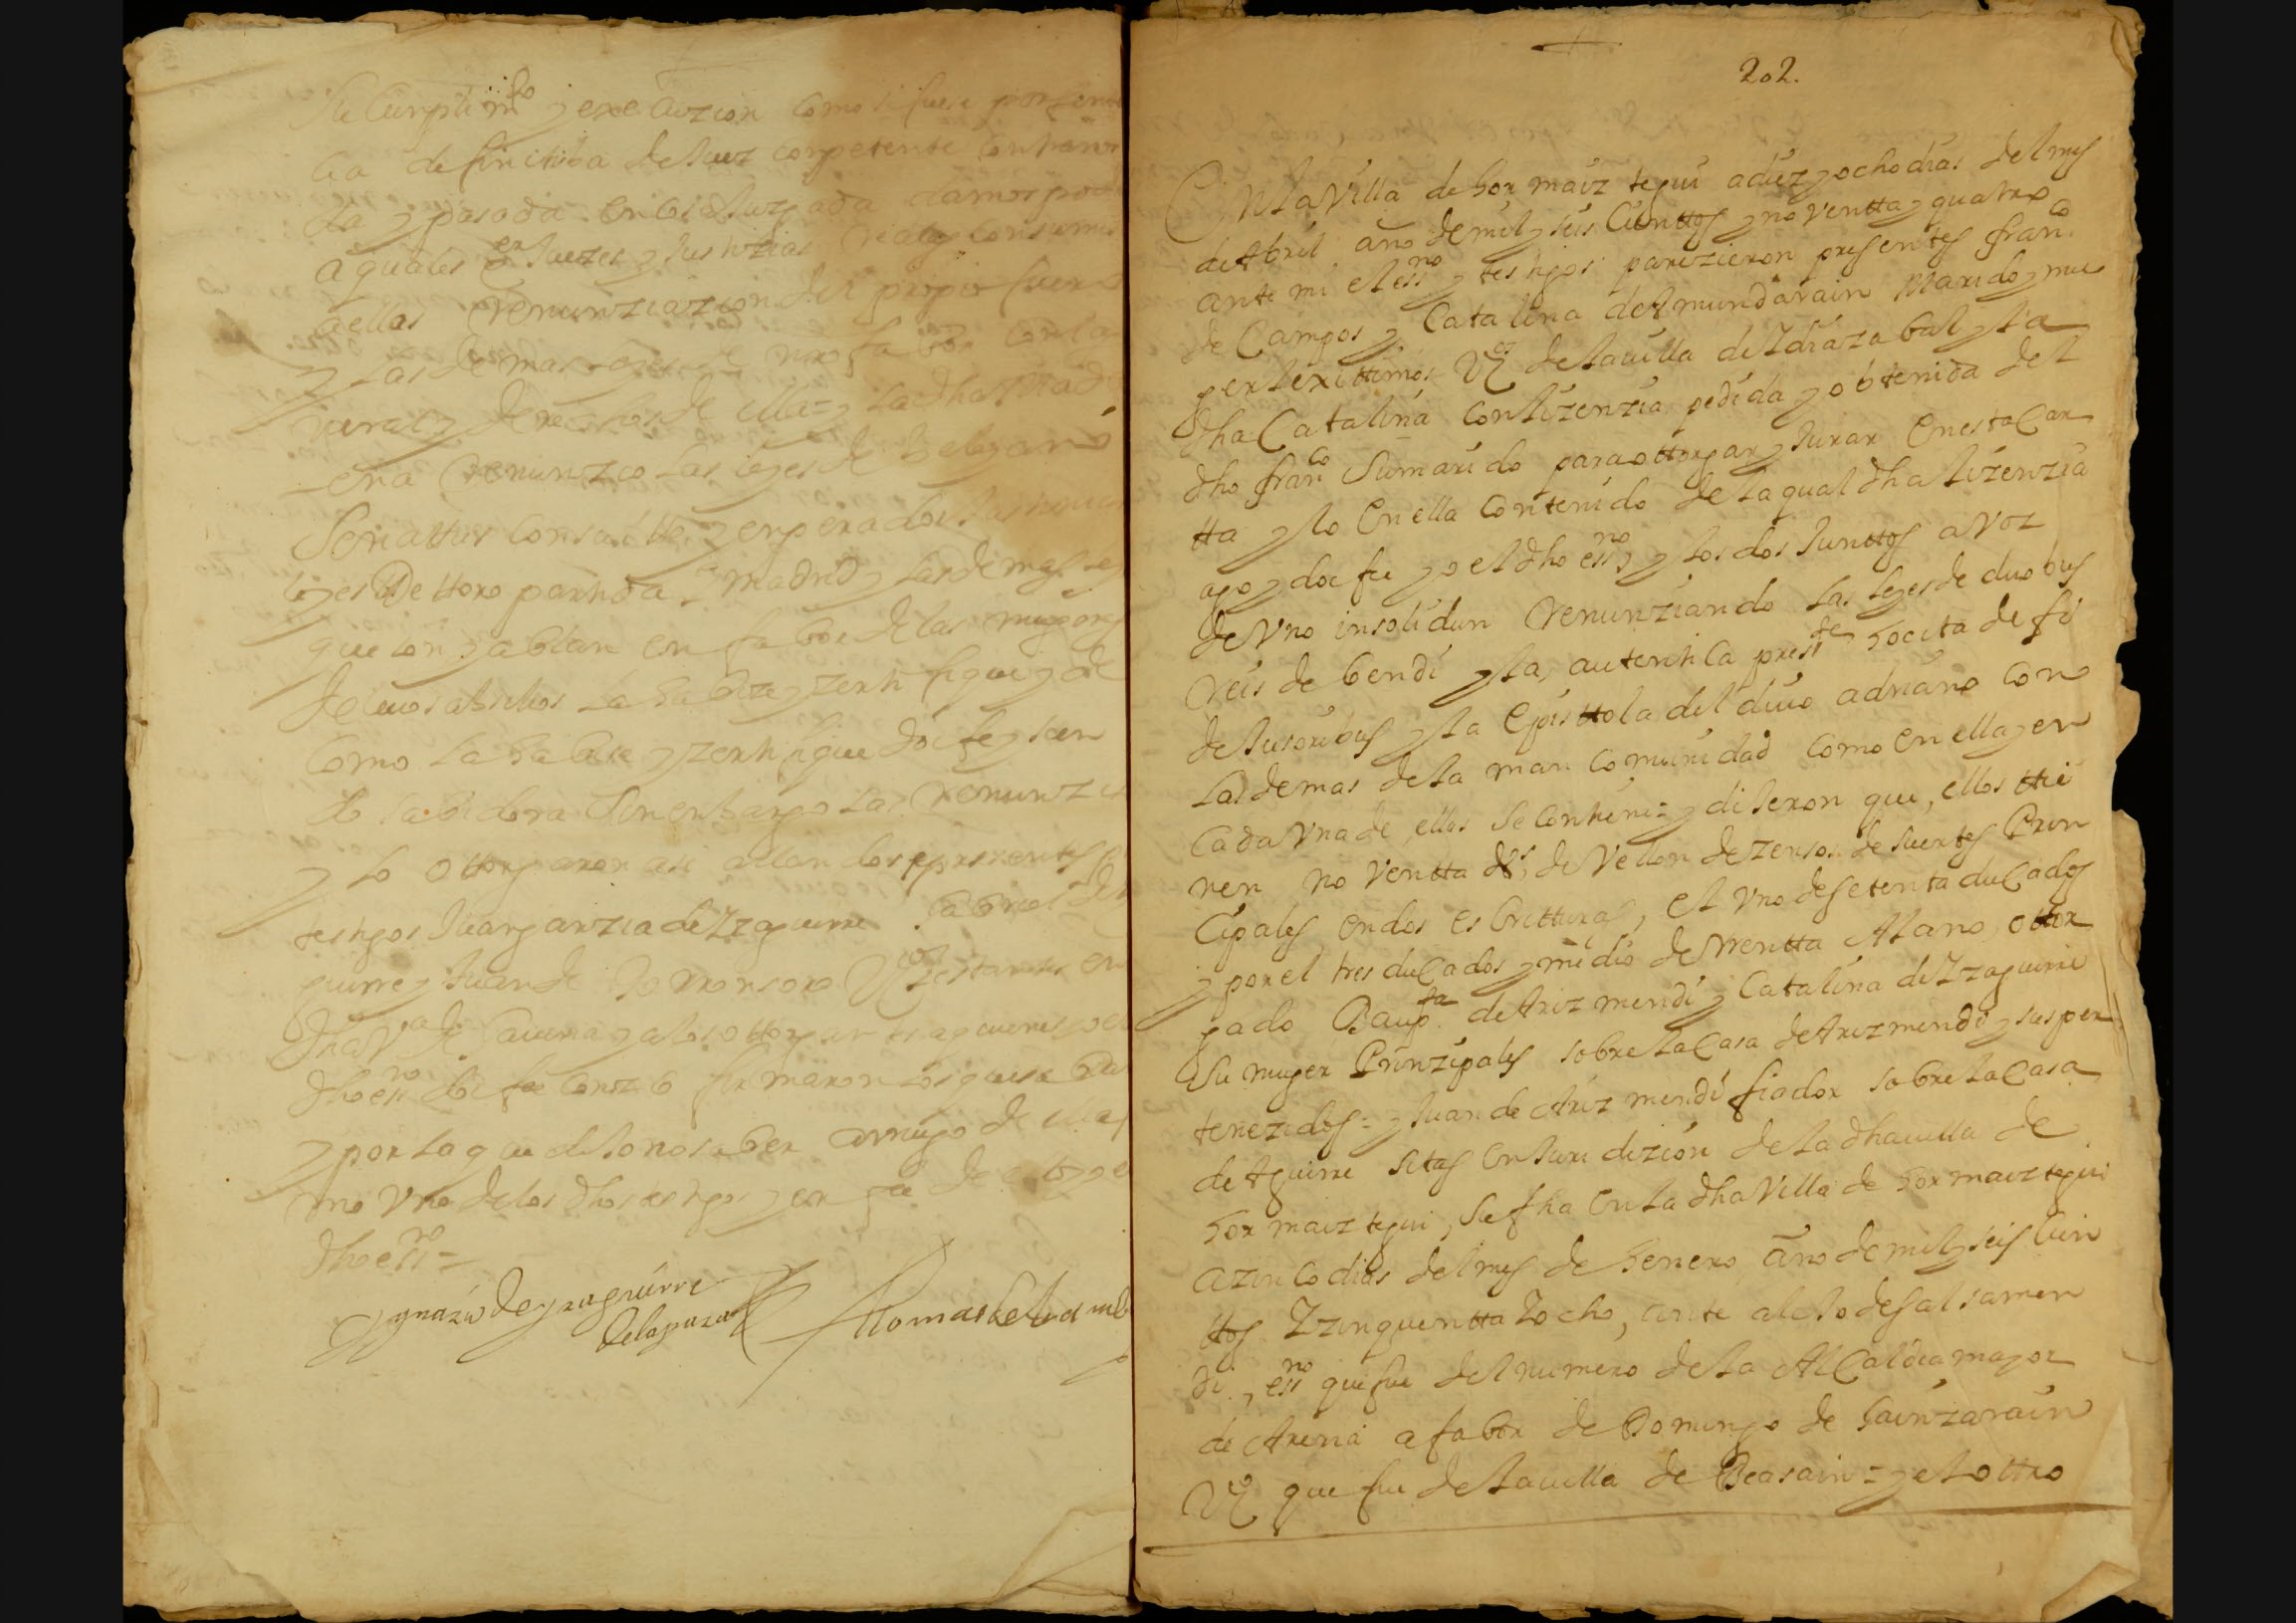 su Cunplimto y execuzion como si fuese por senten
cia definitiba de Juez conpetente Consent
da y pasada en cosa Juzgada damos pod
a quales qer Juezes y Justizias Reales Con sumis
a ellas Renunziazion del propio fuero
y las demas leyes de nro fabor con la
neral y derechos de ella = y la dha
Renunzio las leyes de Beleyano
Senattus consultto y enperador Justinia
leyes de ttoro partida y madrid y las demas
que son y ablan en fabor de las mugeres
de cuios absilios la habize y zertifique y de
Como la habise y zertifique doi fe y
sabidora sin enbargo las Renunzi
y lo ottorgaron asi allandose presentes
testigos Juan garzia de Yzaguirre Gabriel de
guirre y Juan de estantes en
dha Va de y a los ottorgantes a quienes yo el
dho essno doi fee Conozco firmaron los que
y por la que dijo no saber a ruego de ellas
mo Vno de los dhos testigos y en fee de ello yo el
dho essno =
Ygnazio de yzaguirre
de la plaza Thomas de
202.
En la Villa de hormaiztegui a diez y ocho dias del mes
de Abril año de mil y seis Cienttos y noventta y quatro
ante mi el essno y testigos parezieron presentes franco
de Campos y Catalina de Amundarain Marido y mu
ger lexittimos Vos de la uilla de Ydiazabal y la
dha Catalina con lizenzia pedida y obtenida del
dho franco su marido para ottorgar y Jurar en esta Car
tta y lo en ella contenido de la qual dha lizenzia
ago y doi fee yo el dho essno y los dos Junttos a voz
de Vno insolidun Renunziando las leyes de duobus
Reis debendi y la autentica preste hocita de fi
dejusoribus y la Episttola del diuo adriano con
las demas de la mancomunidad como en ella y en
cada vna de ellas se contiene = y dijeron que, ellos ttie
nen noventta ds de vellon de zensos de suertes Prin
cipales en dos escritturas, el Vno de setenta ducados
y por el tres ducados y medio de Rentta Al ano ottor
gado Baupta de Arizmendi y Catalina de Yzaguirre
su muger Prinzipales sobre la Casa de Arizmendi y sus per
tenezidos = y Juan de Arizmendi fiador sobre la Casa
de Aguirre sitas en Juridizion de la dha uilla de
hormaiztegui, su fha en la dha Villa de hormaiztegui
a zinco dias del mes de henero año de mil y seis cien
ttos Y zinquentta Y ocho, ante alejo de salsamen
di, essno que fue del numero de la Al Caldia mayor
de Areria a fabor de Domingo de Sainzarain
Vo que fue de la uilla de Beasain = y el ottro